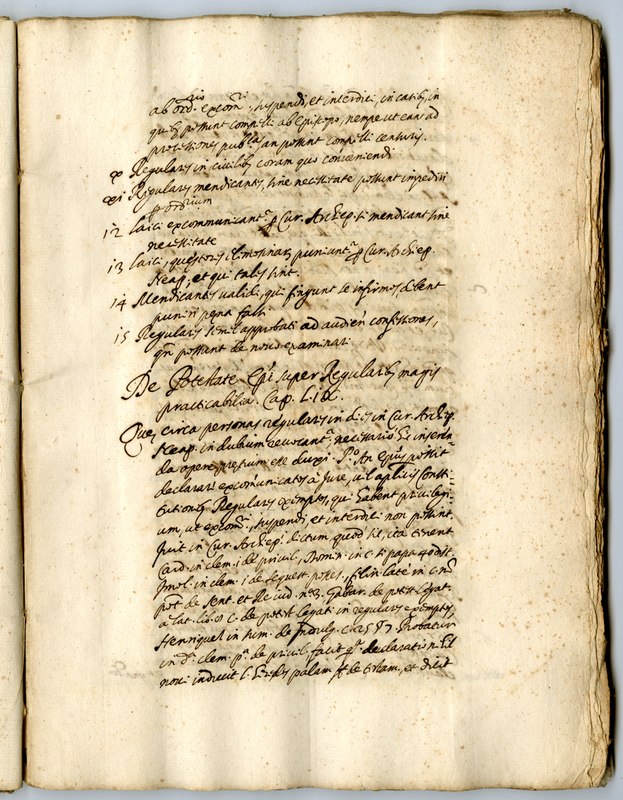 ab ord.rio excom.ri, suspendi, et interdici, in catib9, in
quib9 possunt compelli ab Episcopo, nempe ut eant ad
processiones pub.cas an possint compelli censuris.
x Regulares in civilib9 coram quo conveniendi
xi Regulares mendicantes, sine necessitate possunt impediri
p ord.rium
12 Laici excommunicant.r p Cur. Archiep. si mendicant sine
necessitate
13 Laici, questores elemosinar, puniant.r p Cur. Archiep.
Neap, et qui tales sint.
14 Mendicantes validi, qui fingunt se infirmos, debent
puniri pena falsi
15 Regulares semel approbati ad audien confessiones,
qn possunt de novo examinari.
De Potestate Epi super Regularib9 magis
practicabilia. Cap. LIX.
Que circa personas regulares in dies in Cur. Archiep.
Neap. in dubium revocant.r necessario hic inseren-
da opere pretium esse duxi. P.o An Epus possit
declarare excommunicatos à Jure, vel aplicis Consti-
tutionib9 Regulares exemptos, qui habent privilegi-
um, ut excom.ri, suspendi, et interdici non possint.
fuit in Cur. Archiep. dictum, quod sic, ita tenent
Card. in clem. i de privil., Bonin. in c. si papa 40 dist.
Imol. in clem. i de sequest. posses., felin. latè in c. n.o
pot. de sent. et re iud. n.o 3. Gabar. de potest. legat.
a lat. lib. c. de potest. legati in regulares exemptos
Henriquez in sum. de Indulg. c. 25 87. Probatur
in d.a clem. p.a de privil. facit q.a declaratio n. est
novi inductio l. heredes palam ff de testam, et dicit